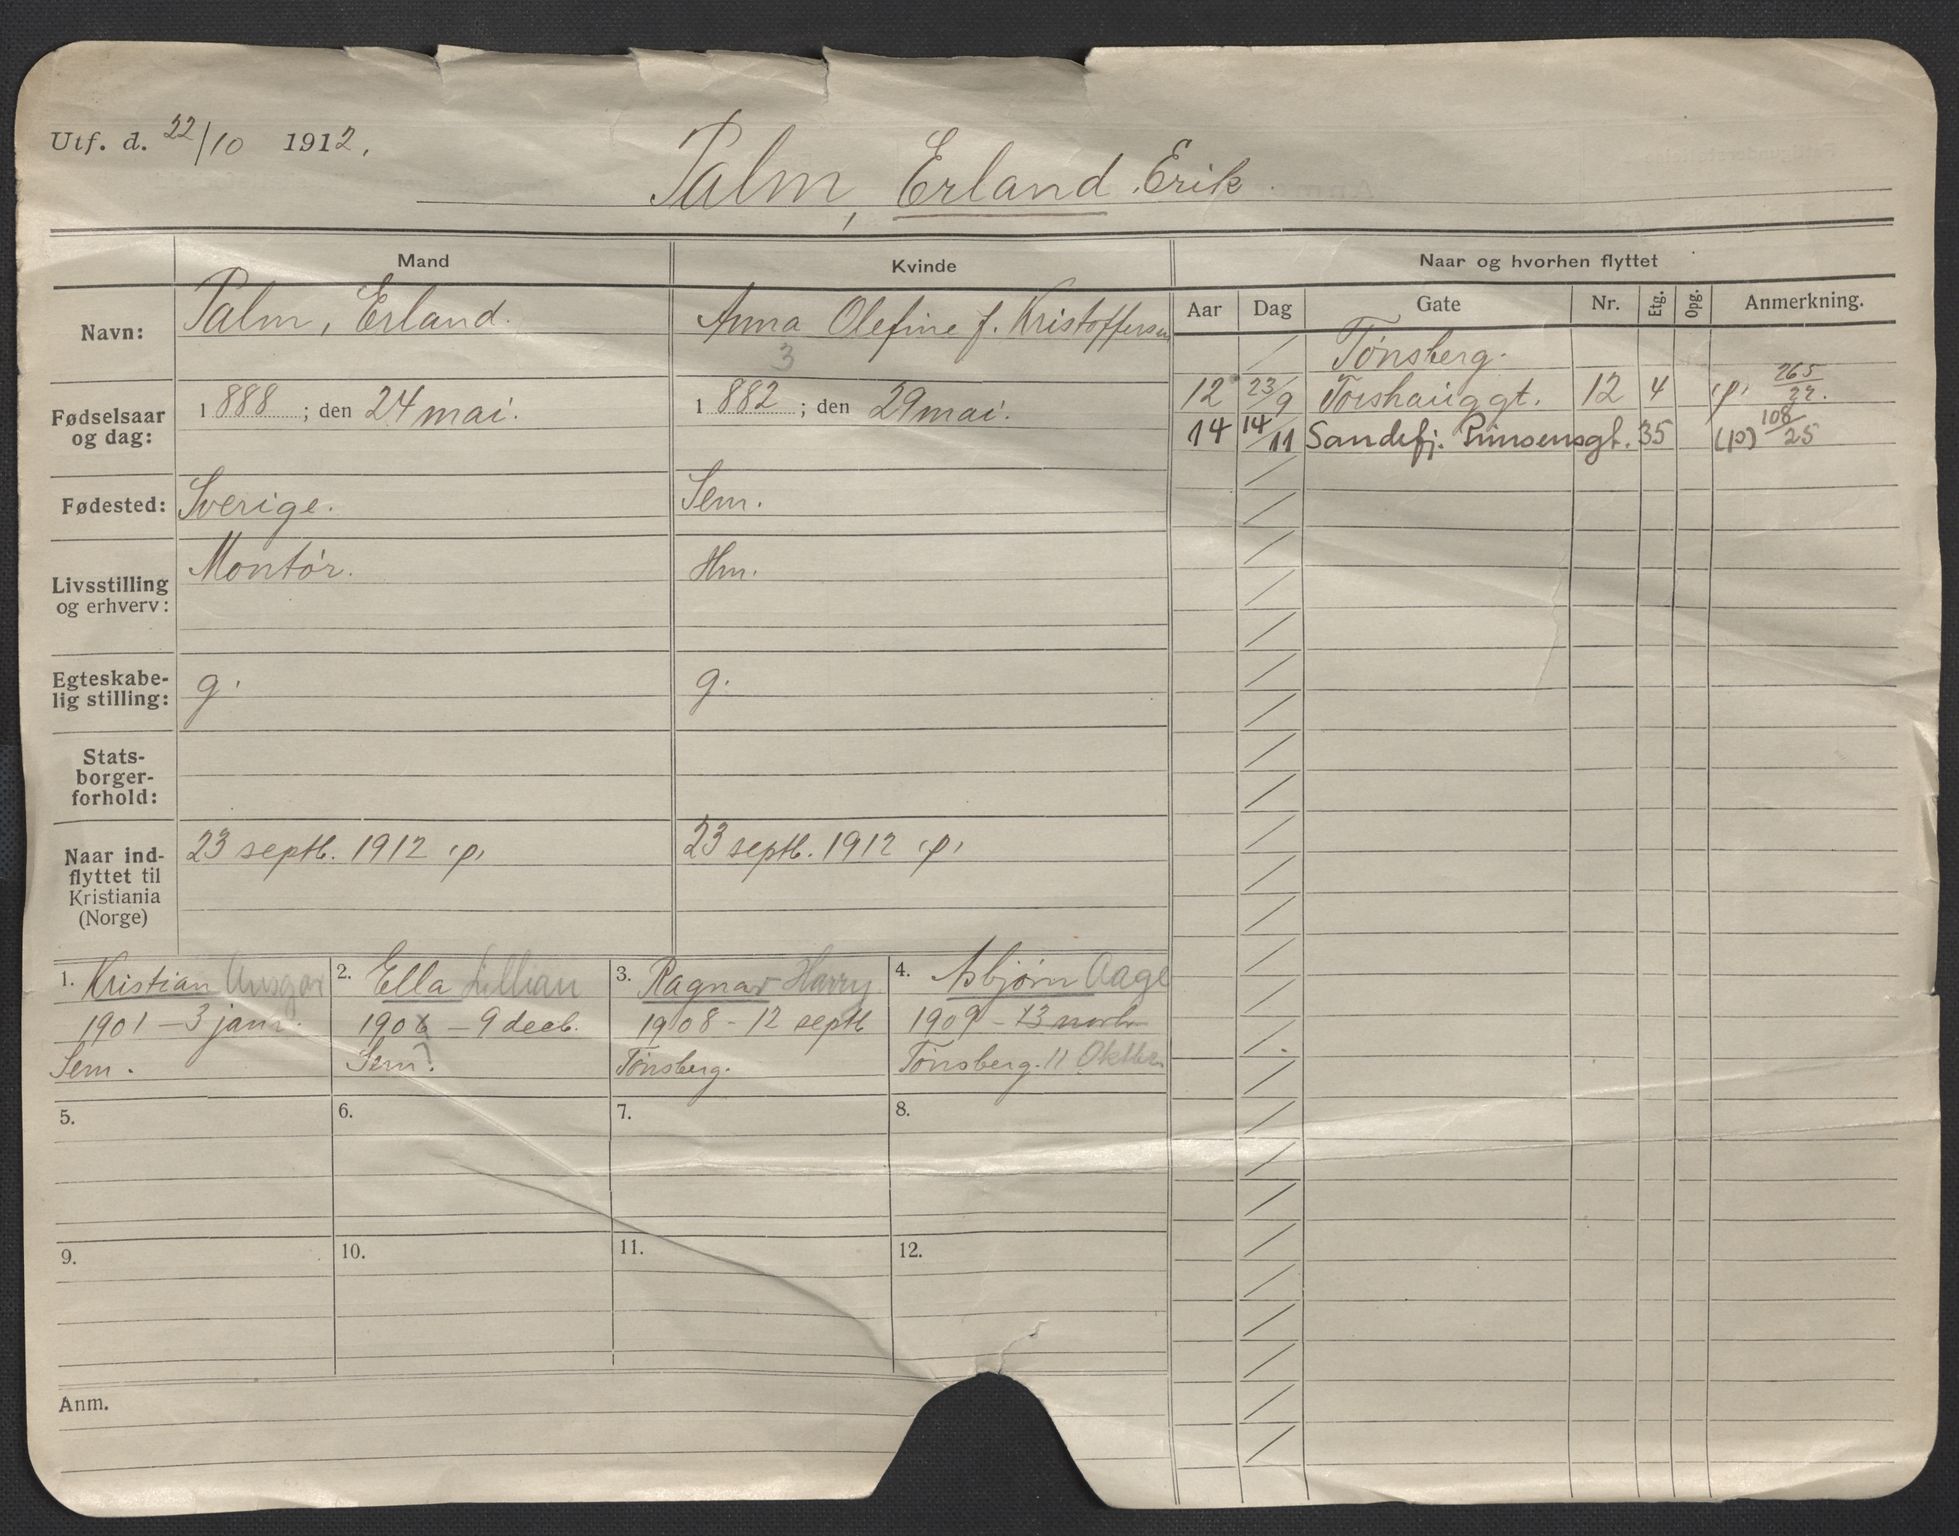 Utf. d. 22/10 1912.
Palm, Erland Erik.
Mand
Kvinde
Naar og hvorhen flyttet
Navn:
Palm, Erland.
Anna Olefine f. Kristoffersen
3
Aar Dag Gate Nr. Etg. Opg. Anmerkning.
Tønsberg.
12 23/9 Torshauggt. 12 4 (p) 265/22.
14 14/11 Sandefj. Prinsensgt. 35 (p) 108/25
Fødselsaar
og dag:
1888; den 24 mai.
1882; den 29 mai.
Fødested:
Sverige.
Sem.
Livsstilling
og erhverv:
Montør.
Hm.
Egteskabe-
lig stilling:
g.
g.
Stats-
borger-
forhold:
Naar ind-
flyttet til
Kristiania
(Norge)
23 septb. 1912 (p)
23 septb. 1912 (p)
1. Kristian Ansgar
1901 – 3 janr.
Sem.
2. Ella Lillian
1906 – 9 decb.
Sem?
3. Ragnar Harry
1908 – 12 septb
Tønsberg.
4. Asbjørn Aage
1909 – 13 novbr
Tønsberg. 11 Oktber
5.
6.
7.
8.
9.
10.
11.
12.
Anm.